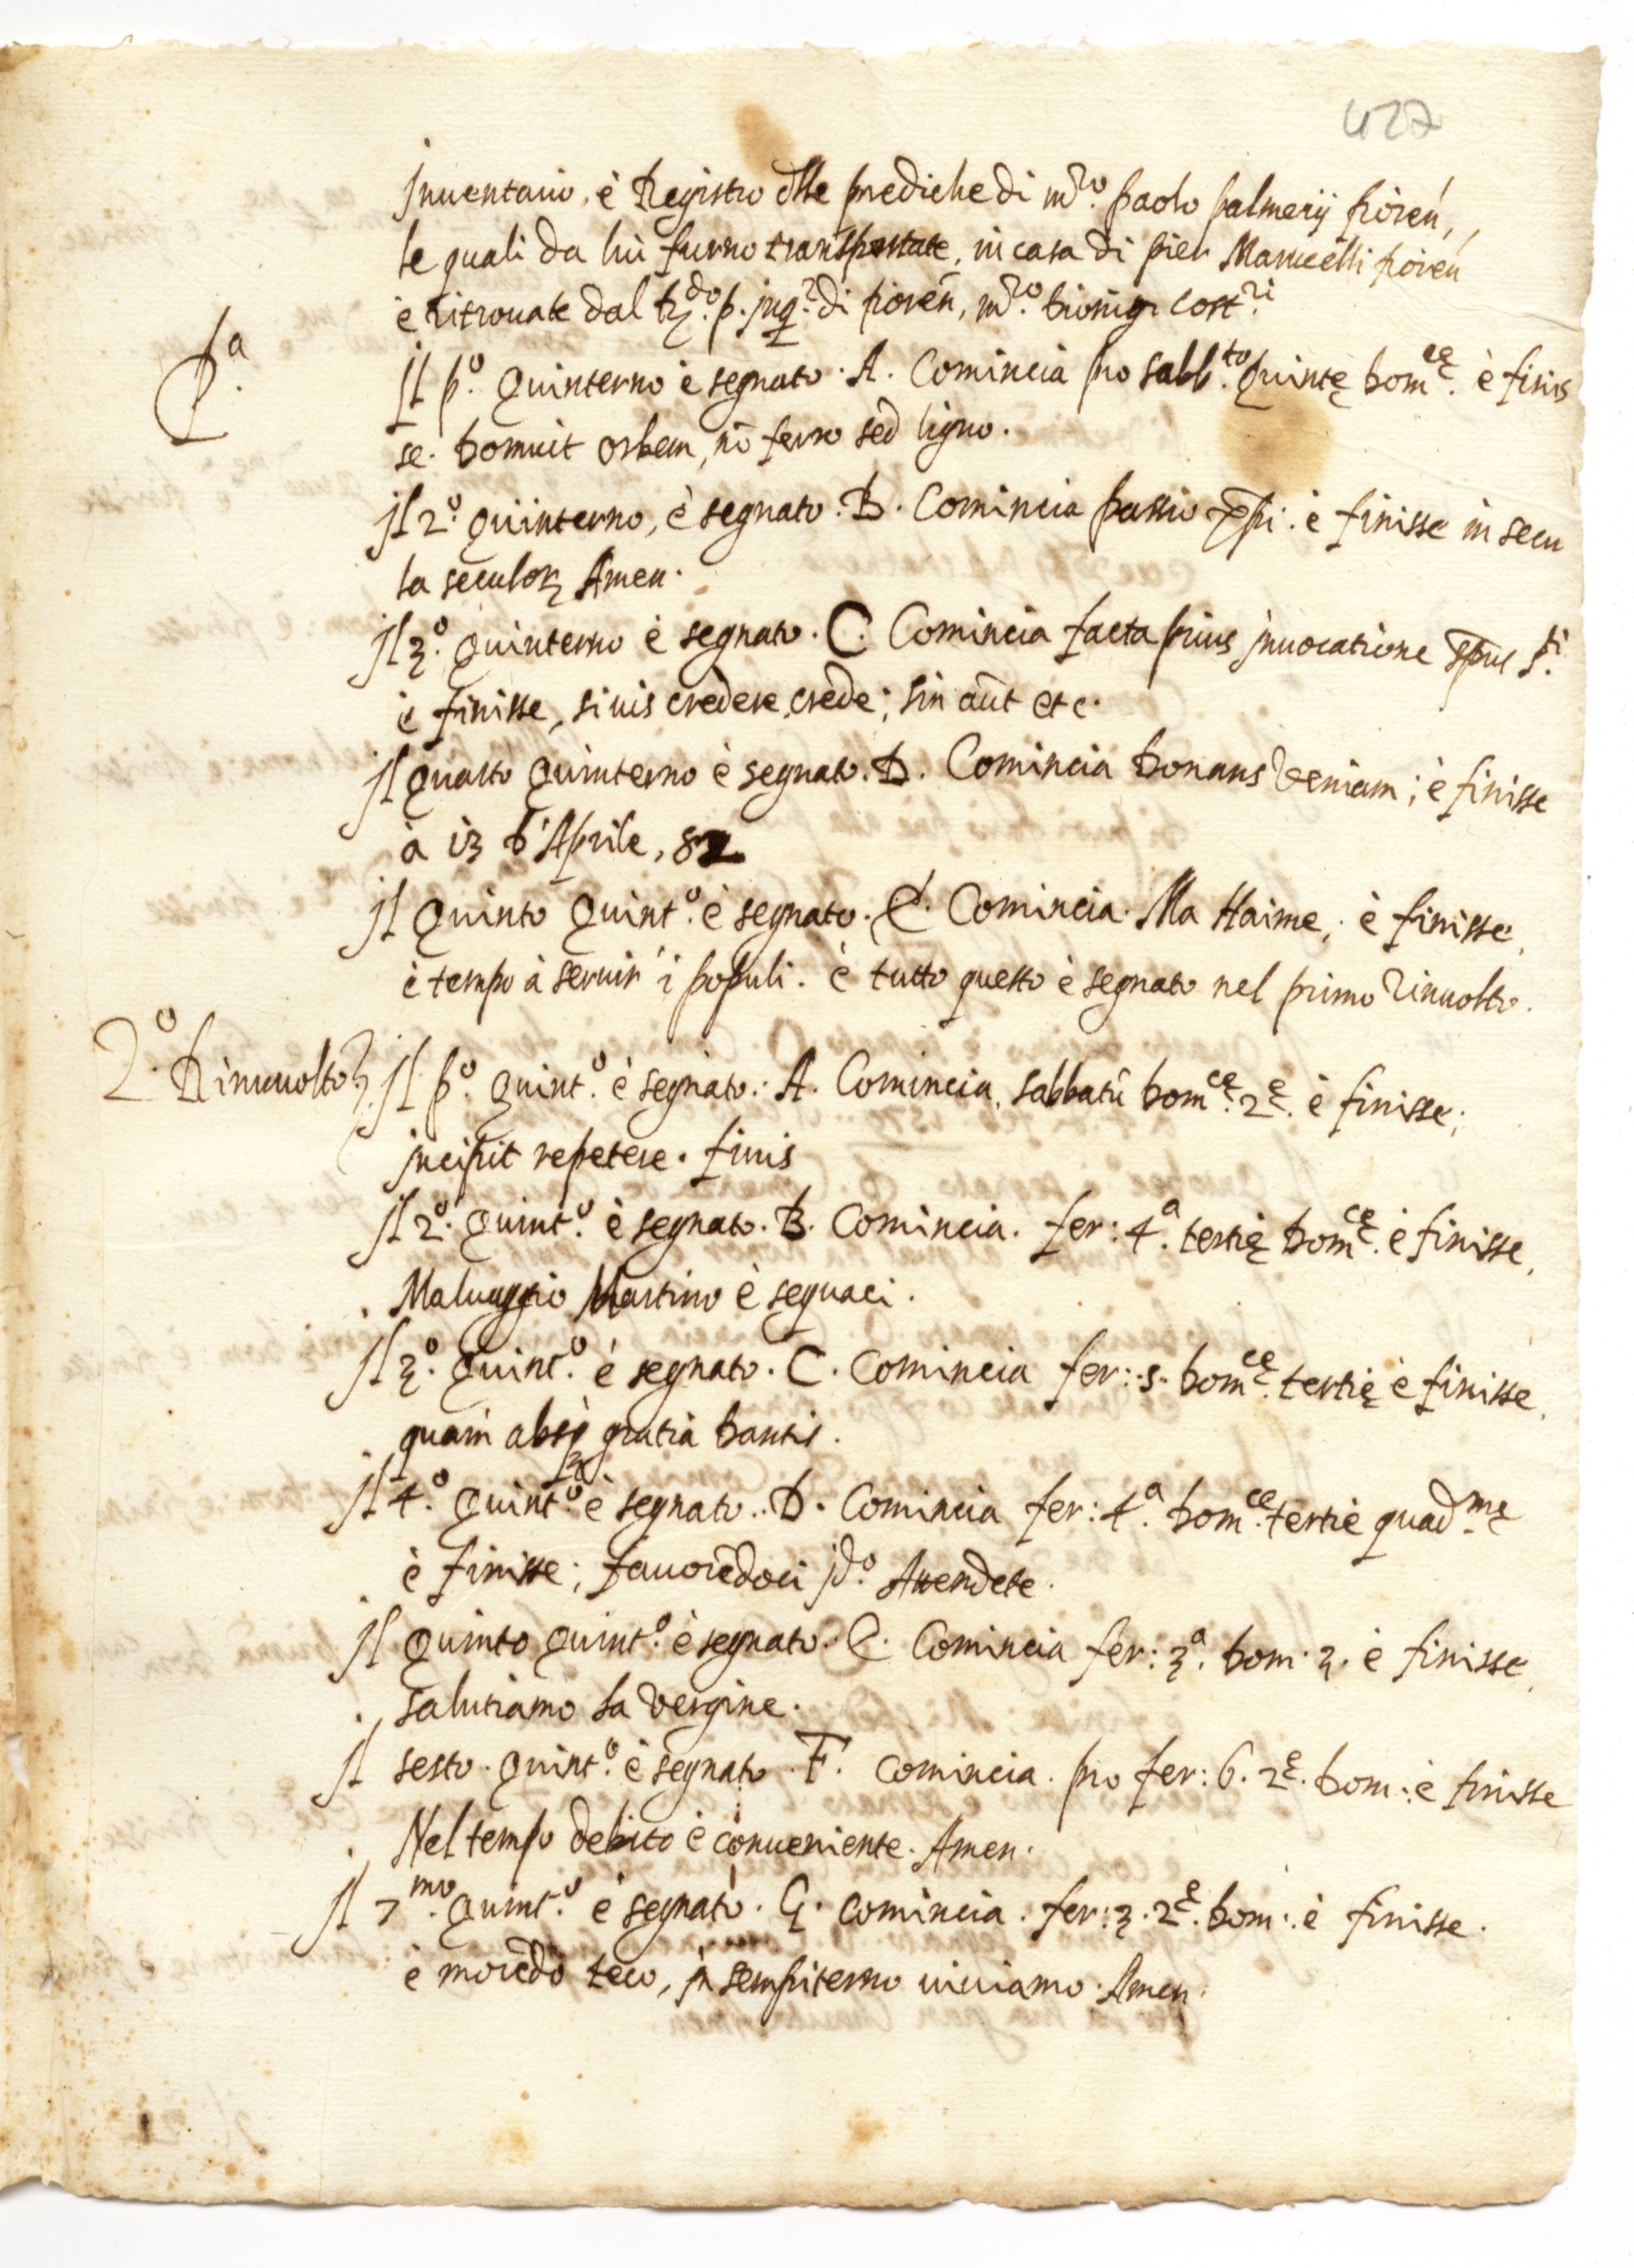 427
Inuentaio, è Registro delle prediche di mro. Paolo Palmerij fioren.,
le quali da lui furno transportate, in casa di Pier Marucelli fioren
è ritrouate dal Rdo. P. Inqr. di fioren, mro. Dionigi Costri
Pa.
Il po. Quinterno è segnato. A. Comincia pro sabbto. Quintę Domcę. è finis
se. Domuit orbem, nō ferro sed ligno.
Il 2o. Quinterno, è segnato. B. Comincia passio xpi. è finisse in secu
la seculor Amen.
Il 3o. Quinterno è segnato. C. Comincia facta prius inuocatione Spus sti.
è finisse, si uis credere, crede; sin aut etc.
Il Quarto Quinterno è segnato. D. Comincia Donans Veniam; è finisse
à 13 d'Aprile, 82
Il Quinto Quinto. è segnato. E. Comincia. Ma Haime, è finisse,
è tempo à seruir' i populi. è tutto questo è segnato nel primo Rinuolto.
2o. Rinuuolto
Il po. Quinto. è segnato: A. Comincia, sabbatū Domcę. 2ę. è finisse;
incipit repetere. finis
Il 2o. Quinto. è segnato. B. Comincia. fer: 4a. tertię Domcę. è finisse,
Maluaggio Martino è seguaci.
Il 3o. Quinto. è segnato. C. Comincia fer: 5. Domcę. tertię è finisse,
quam absq gratia Dantis.
Il 4.o Quinto è segnato.. D. Comincia fer: 4a. Domce. tertiè quadmę
è finisse; fauorēdoci Ido. Attendete.
Il Quinto Quinto. è segnato. E. Comincia fer: 3a. Dom. 3. è finisse,
salutiamo la Vergine.
Il sesto. Quinto. è segnato. F. Comincia. pro fer: 6. 2ę. Dom: è finisse
Nel tempo debito è conueniente. Amen.
Il 7mo. Quinto. è segnato. G. comincia. fer: 3. 2ę. Dom: è finisse.
è morēdo teco, in sempiterno uiuiamo. Amen.